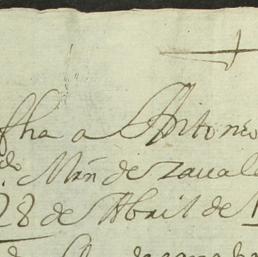 fha a Antonio
do. Mrn de zaual
28 de Abril de 1